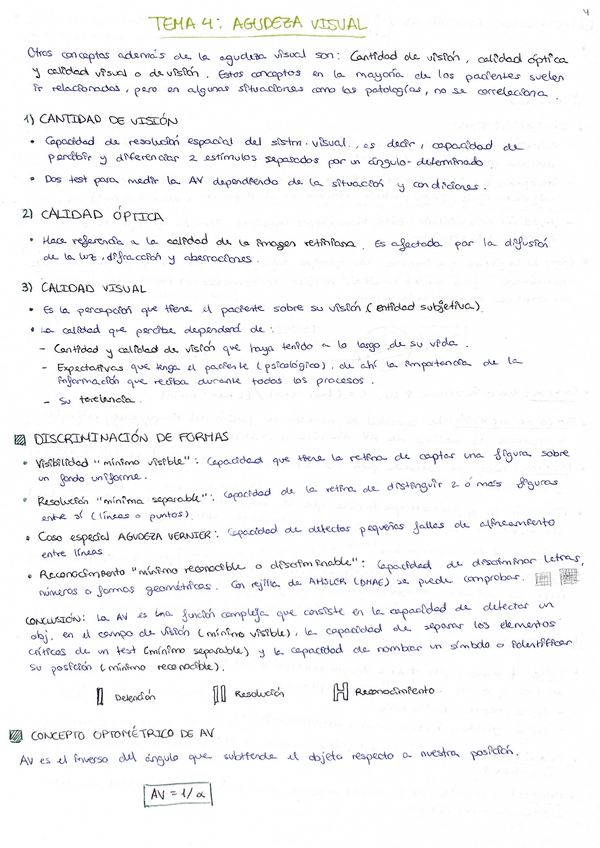 4
TEMA 4: AGUDEZA VISUAL
Otros conceptos además de la agudeza visual son: Cantidad de visión, calidad óptica
y calidad visual o de visión. Estos conceptos en la mayoría de los pacientes suelen
ir relacionados, pero en algunas situaciones como las patologías, no se correlaciona.
1) CANTIDAD DE VISIÓN
• Capacidad de resolución espacial del sistm. visual, es decir, capacidad de
percibir y diferenciar 2 estímulos separados por un ángulo determinado.
• Dos test para medir la AV dependiendo de la situación y condiciones.
2) CALIDAD ÓPTICA
• Hace referencia a la calidad de la imagen retiniana. Es afectada por la difusión
de la luz, difracción y aberraciones.
3) CALIDAD VISUAL
• Es la percepción que tiene el paciente sobre su visión (entidad subjetiva).
• La calidad que perciba dependerá de:
- Cantidad y calidad de visión que haya tenido a lo largo de su vida.
- Expectativas que tenga el paciente (psicológico), de ahí la importancia de la
información que reciba durante todos los procesos.
- Su tolerancia.
DISCRIMINACIÓN DE FORMAS
• Visibilidad "mínimo visible": Capacidad que tiene la retina de captar una figura sobre
un fondo uniforme.
• Resolución "mínima separable": Capacidad de la retina de distinguir 2 ó más figuras
entre sí (líneas o puntos).
• Caso especial AGUDEZA VERNIER: Capacidad de detectar pequeños fallos de alineamiento
entre líneas.
• Reconocimiento "mínimo reconocible o discriminable": Capacidad de discriminar letras,
números o formas geométricas. Con rejilla de AMSLER (DMAE) se puede comprobar.
CONCLUSIÓN: La AV es una función compleja que consiste en la capacidad de detectar un
obj. en el campo de visión (mínimo visible), la capacidad de separar los elementos
críticos de un test (mínimo separable) y la capacidad de nombrar un símbolo o identificar
su posición (mínimo reconocible).
Detención Resolución Reconocimiento
CONCEPTO OPTOMÉTRICO DE AV
AV es el inverso del ángulo que subtiende el objeto respecto a nuestra posición.
AV = 1/α